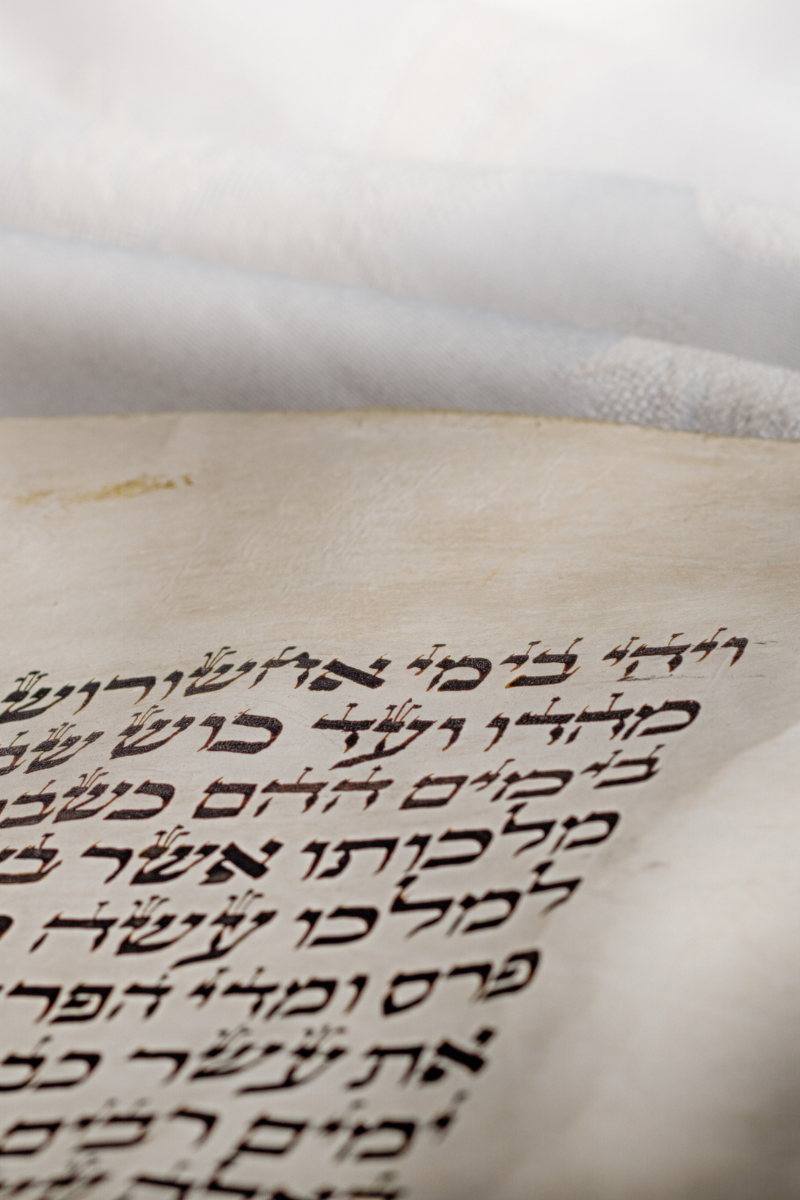 ויהי בימי אחשורוש
מהדו ועד כוש
בימים ההם
מלכותו אשר
למלכו עשה
פרס ומדי
את עשר
ימים רבים